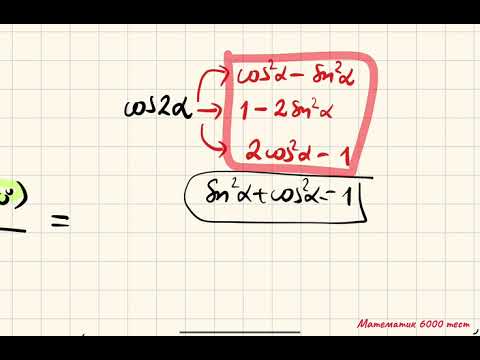 cos²α − sin²α
cos2α → 1 − 2sin²α
2cos²α − 1
sin²α + cos²α = 1
=
Математик 6000 тест